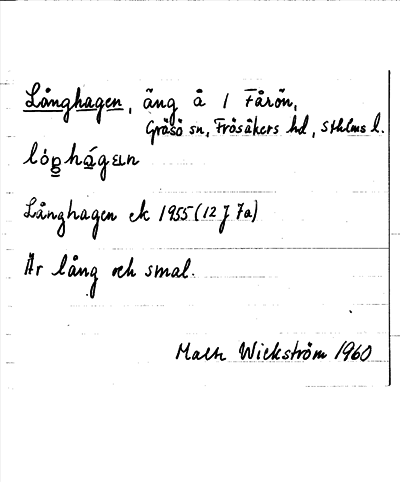 Långhagen, äng å / Fårön,
Gräsö sn, Frösåkers hd, Sthlms l.
Långhagen ek 1955 (12 J 7a)
Är lång och smal.
Wickström 1960